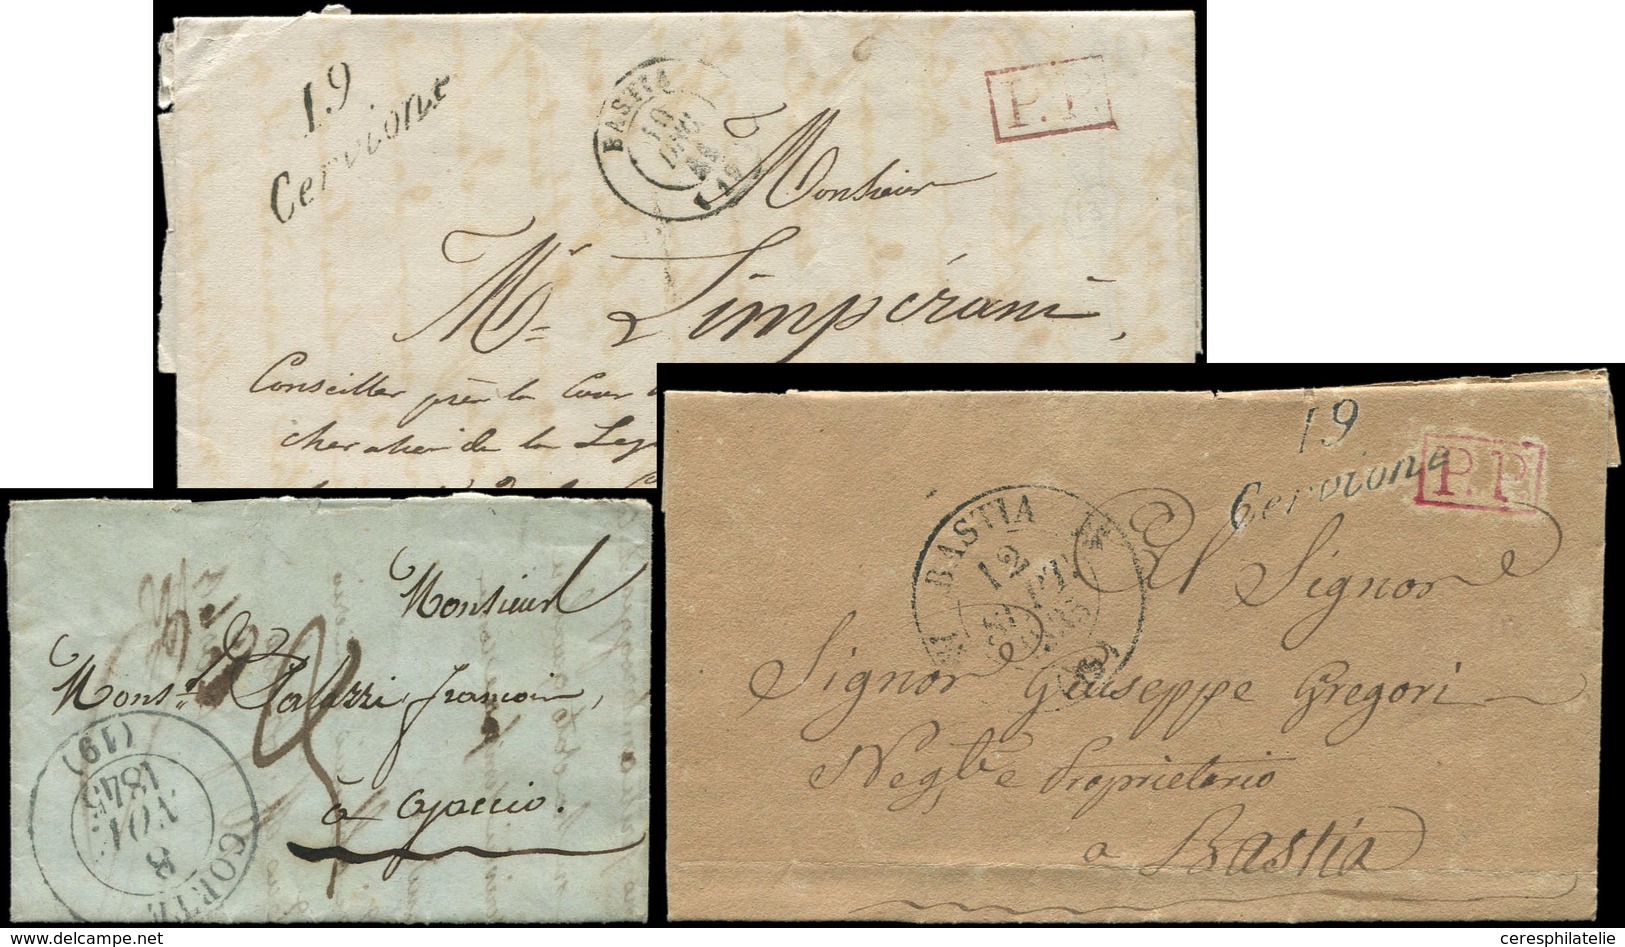 19
Cervione
BASTIA
10
(19)
P.P.
Monsieur
Mr. Limpérani,
Conseiller près la Cour
chevalier de la Leg
19
Cervione
P.P.
BASTIA
12
SEPT.
(19)
Al Signor
Signor Giuseppe Gregori
Negte e Proprietario
a Bastia
Monsieur
Monsr. Palazzi françois,
à ajaccio.
CORTE
8
NOV
1845
(19)
delcampe.net
ceresphilatelie